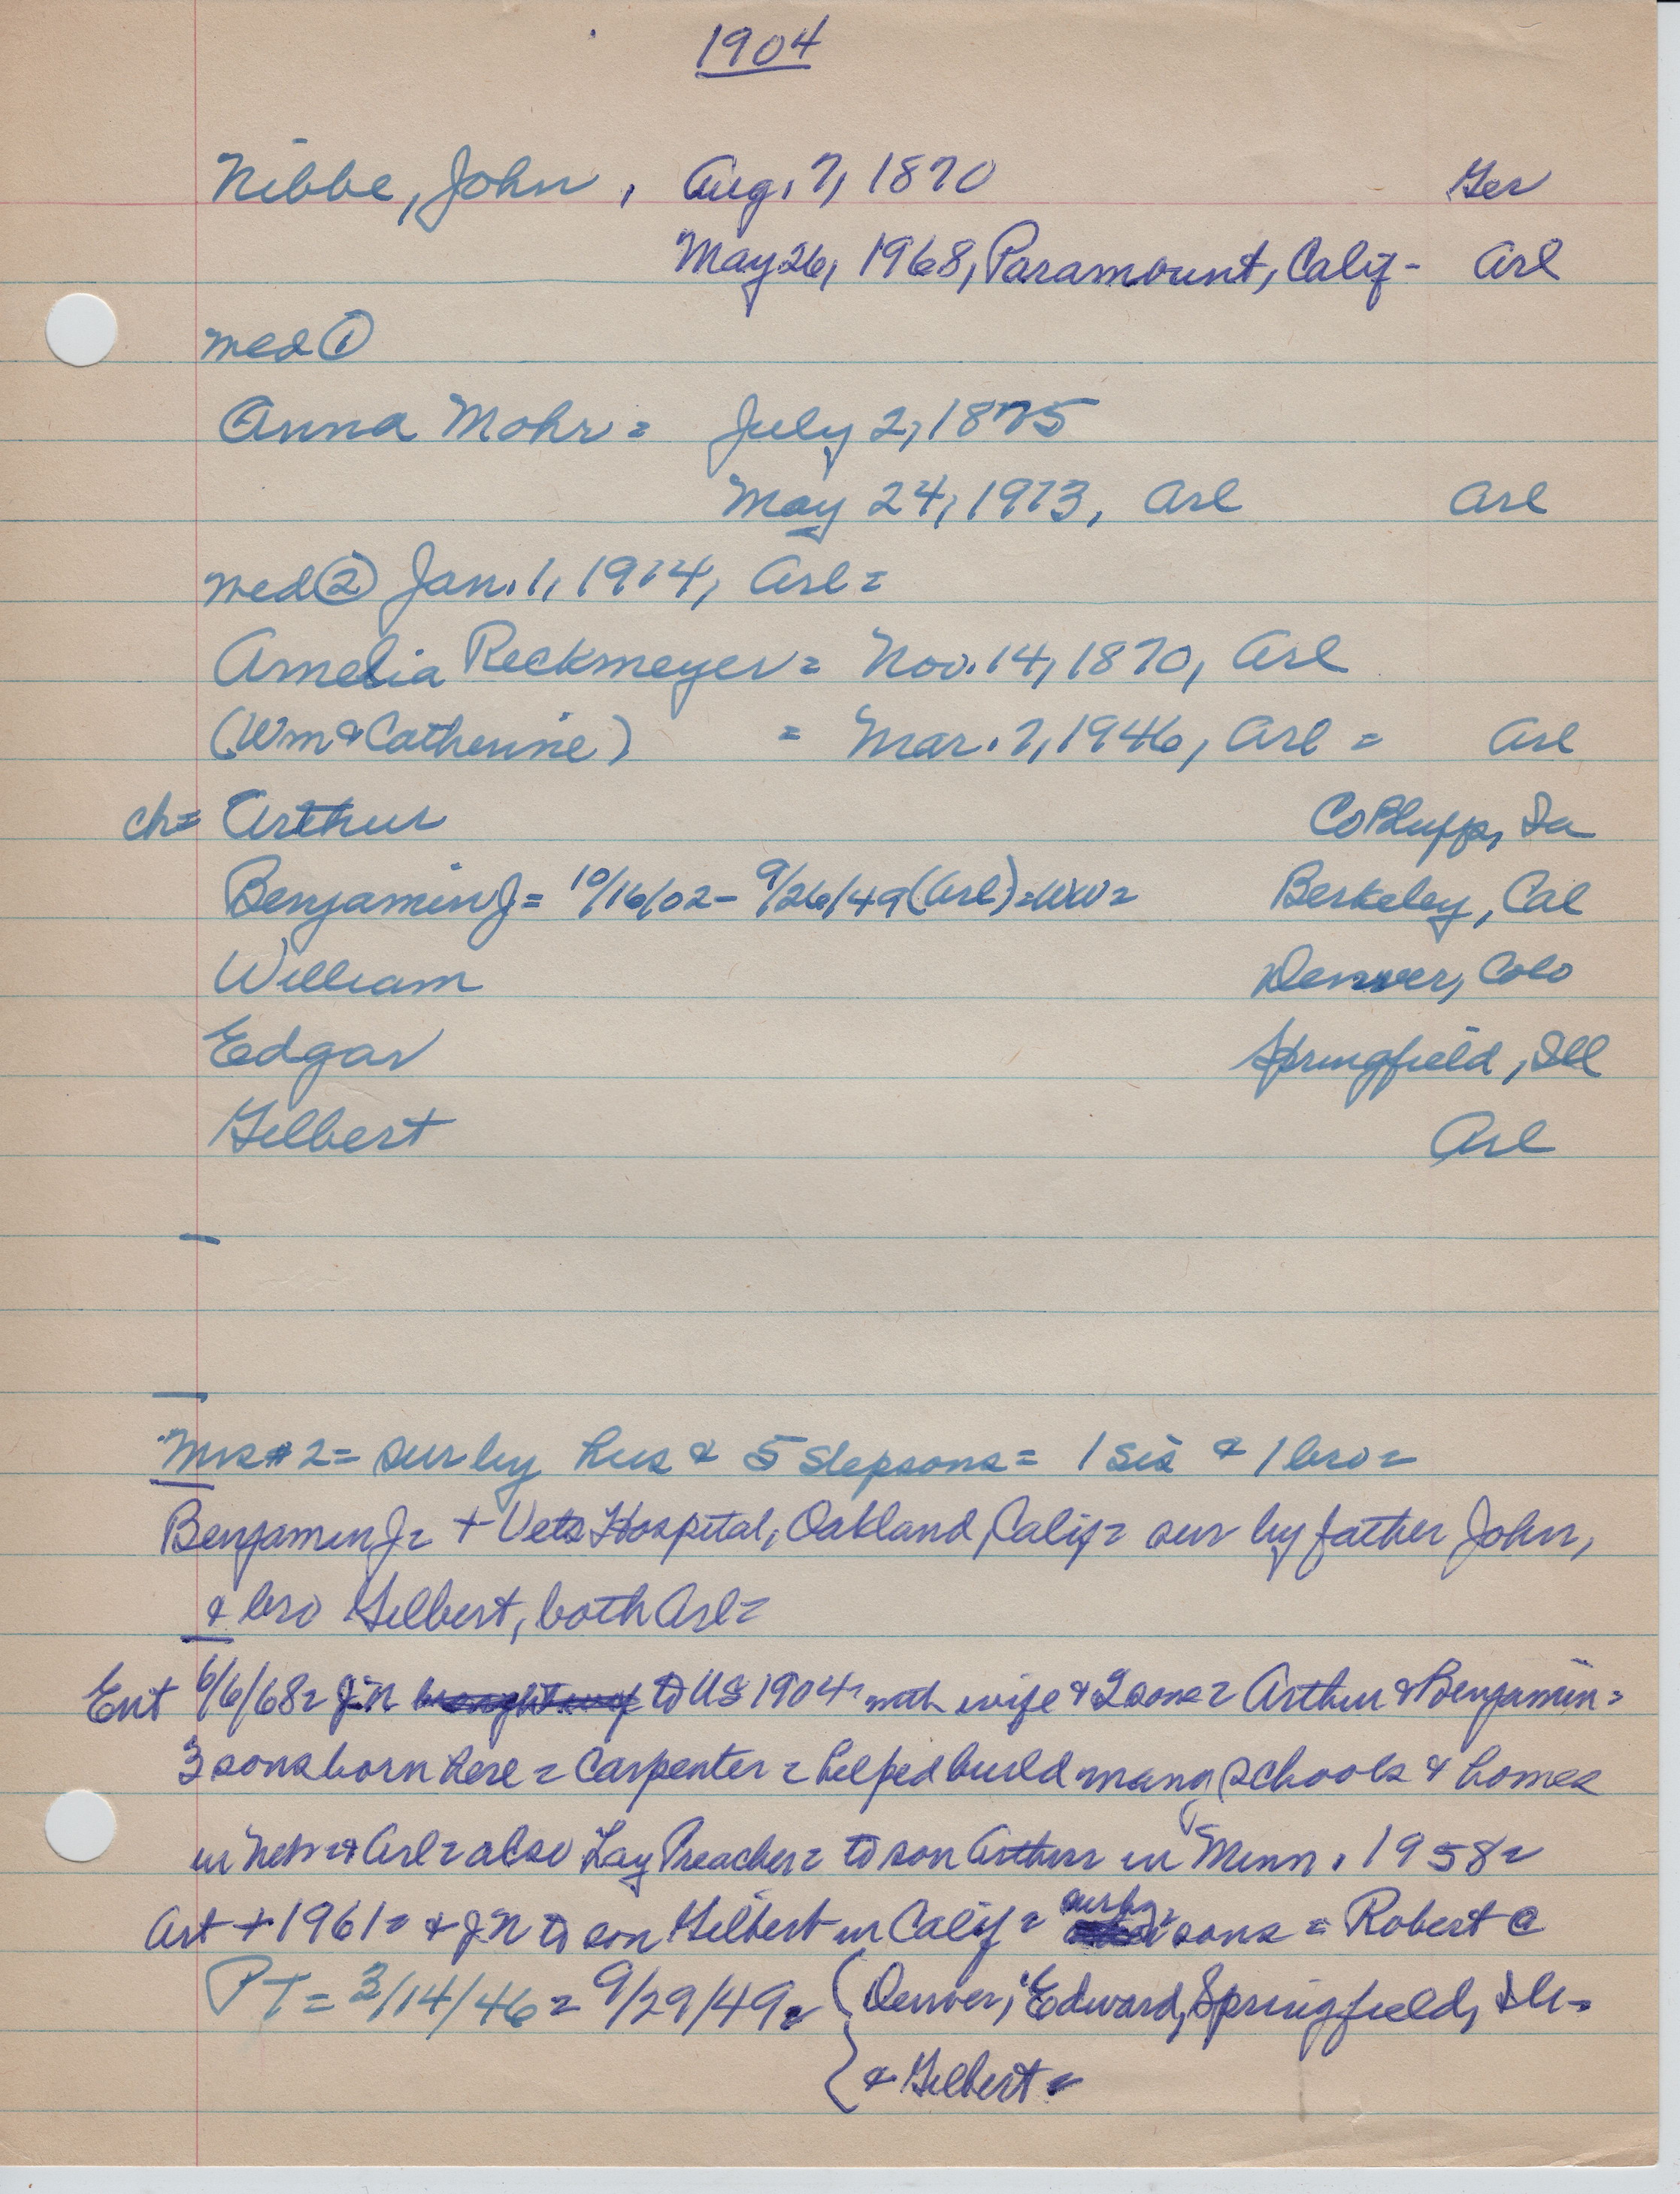 1904
Nibbe, John, Aug. 7, 1870 Ger
May 26, 1968, Paramount, Calif - Arl
med ①
Anna Mohr = July 2, 1875
May 24, 1913, Arl Arl
med ② Jan. 1, 1914, Arl =
Amelia Reckmeyer = Nov. 14, 1870, Arl
(Wm & Catherine) = Mar. 7, 1946, Arl = Arl
ch= Arthur Co Bluffs, Ia
Benjamin J = 10/16/02 - 9/26/49 (Arl) = WW = Berkeley, Cal
William Denver, Colo
Edgar Springfield, Ill
Gilbert Arl
Mrs #2 = sur by hus & 5 stepsons = 1 sis & 1 bro =
Benjamin J = + Vets Hospital, Oakland, Calif = sur by father John,
& bro Gilbert, both Arl =
Ent 6/6/68 = JN to US 1904 with wife & 2 sons = Arthur & Benjamin =
3 sons born here = Carpenter = helped build many schools & homes
in Neb & Arl = also Lay Preacher = to son Arthur in Minn. 1958 =
Art + 1961 = & JN to son Gilbert in Calif = sur by sons = Robert
PT = 3/14/46 = 9/29/49 = { Denver; Edward, Springfield, Ill -
& Gilbert =